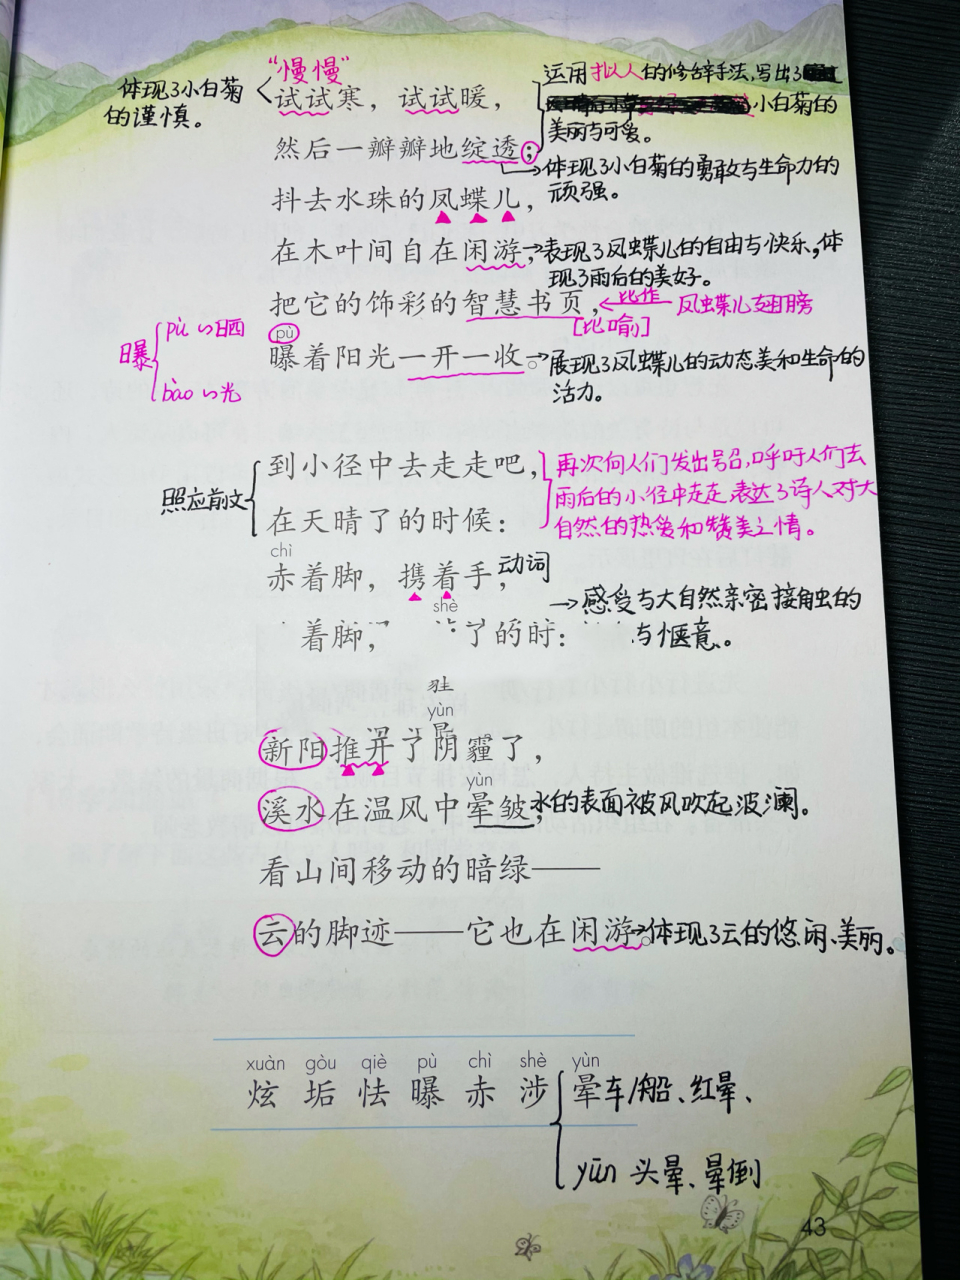 "慢慢"
体现了小白菊
的谨慎。
试试寒，试试暖，
运用拟人的修辞手法,写出了
小白菊的
美丽与可爱。
然后一瓣瓣地绽透；
体现了小白菊的勇敢与生命力的
顽强。
抖去水珠的凤蝶儿，
在木叶间自在闲游，
表现了凤蝶儿的自由与快乐,体
现了雨后的美好。
把它的饰彩的智慧书页，
比作
凤蝶儿翅膀
[比喻]
pù
曝着阳光一开一收。
展现了凤蝶儿的动态美和生命的
活力。
曝
pù 晒
bào 光
到小径中去走走吧，
在天晴了的时候：
照应前文
再次向人们发出号召,呼吁人们去
雨后的小径中走走,表达了诗人对大
自然的热爱和赞美之情。
chì
赤着脚，携着手，
动词
shè
感受与大自然亲密接触的
与惬意。
着脚，
了的时：
yùn
新阳推开了阴霾了，
yùn
溪水在温风中晕皱，
水的表面被风吹起波澜。
看山间移动的暗绿——
云的脚迹——它也在闲游。
体现了云的悠闲、美丽。
xuàn gòu qiè pù chì shè yùn
炫 垢 怯 曝 赤 涉 晕
车/船、红晕、
yūn 头晕、晕倒
43